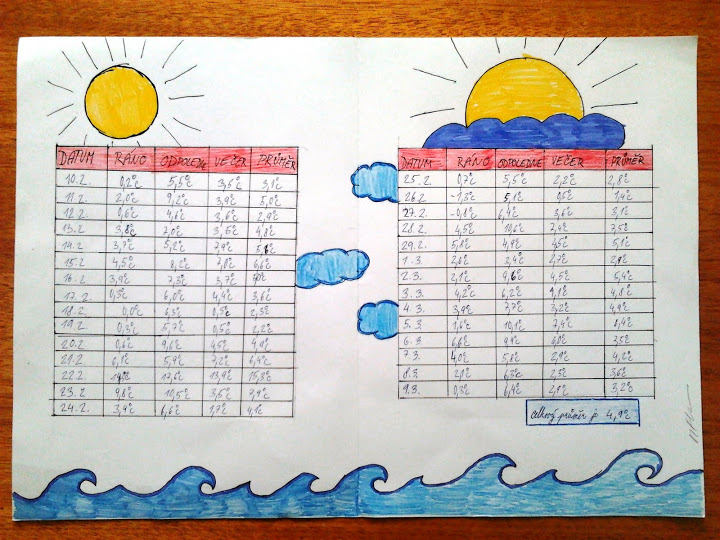 DATUM RÁNO ODPOLEDNE VEČER PRŮMĚR
10.2. 0,2°C 5,5°C 3,5°C 3,1°C
11.2. 2,0°C 9,2°C 3,9°C 5,0°C
12.2. 0,6°C 4,6°C 3,6°C 2,9°C
13.2. 3,8°C 7,0°C 3,5°C 4,8°C
14.2. 3,7°C 5,2°C 7,9°C 5,6°C
15.2. 4,5°C 8,2°C 7,0°C 6,6°C
16.2. 3,9°C 7,3°C 3,7°C
17.2. 0,5°C 6,0°C 4,4°C 3,6°C
18.2. 0,0°C 6,3°C 0,5°C 2,3°C
19.2. 0,3°C 5,7°C 0,5°C 2,2°C
20.2. 0,6°C 9,6°C 4,5°C 4,9°C
21.2. 6,1°C 5,9°C 7,2°C 6,4°C
22.2. 17,6°C 13,9°C 15,3°C
23.2. 9,8°C 10,5°C 3,5°C 7,9°C
24.2. 3,9°C 6,6°C 1,7°C 4,1°C
DATUM RÁNO ODPOLEDNE VEČER PRŮMĚR
25.2. 0,7°C 5,5°C 2,2°C 2,8°C
26.2. -1,3°C 5,1°C 0,5°C 1,4°C
27.2. -0,8°C 6,4°C 3,6°C 3,1°C
28.2. 4,5°C 10,6°C 7,4°C 7,5°C
29.2. 5,8°C 4,9°C 4,5°C 5,1°C
1.3. 2,0°C 3,4°C 2,7°C 2,8°C
2.3. 2,1°C 9,6°C 4,5°C 5,4°C
3.3. 4,2°C 6,2°C 4,8°C
4.3. 3,9°C 7,7°C 3,2°C 4,9°C
5.3. 1,6°C 10,1°C 7,4°C 8,4°C
6.3. 6,6°C 9,9°C 6,0°C 7,5°C
7.3. 4,0°C 5,8°C 2,9°C 4,2°C
8.3. 2,0°C 6,3°C 2,5°C 3,6°C
9.3. 0,3°C 6,4°C 2,8°C 3,2°C
celkový průměr je 4,9°C